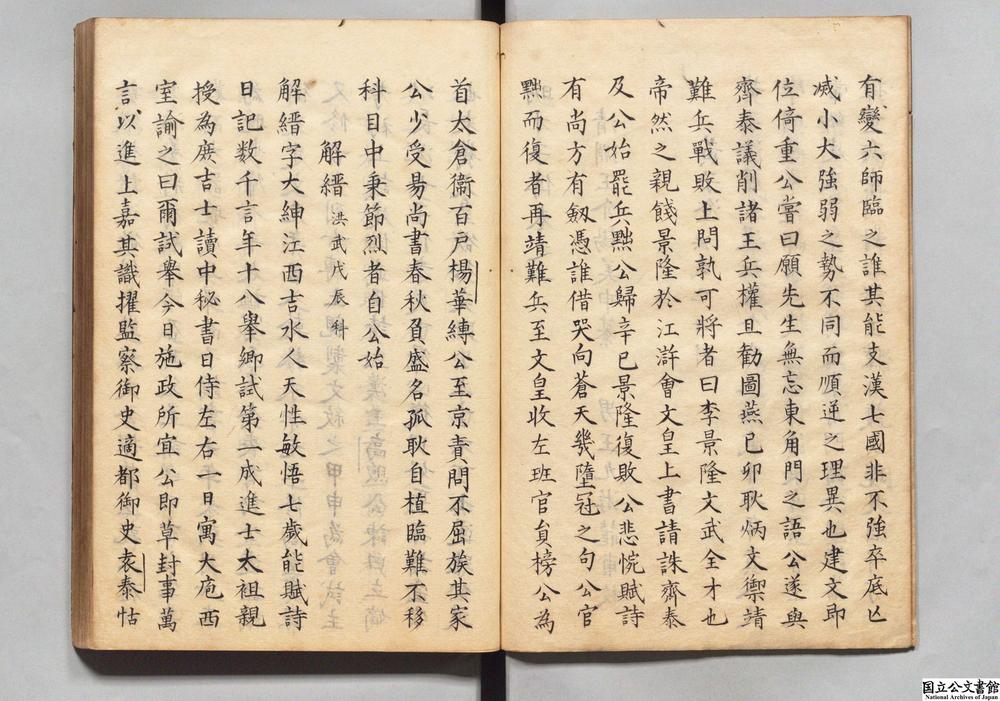 有變六師臨之誰其能支漢七國非不強卒底亡
滅小大強弱之勢不同而順逆之理異也建文即
位倚重公嘗曰願先生無忘東角門之語公遂與
齊泰議削諸王兵權且勸圖燕己卯耿炳文禦靖
難兵戰敗上問孰可將者曰李景隆文武全才也
帝然之親餞景隆於江滸會文皇上書請誅齊泰
及公始罷兵黜公歸辛巳景隆復敗公悲惋賦詩
有尚方有劔憑誰借哭向蒼天幾墮冠之句公官
黜而復者再靖難兵至文皇收左班官貟榜公為
首太倉衞百戶楊華縛公至京責問不屈族其家
公少受昜尚書春秋負盛名孤耿自植臨難不移
科目中秉節烈者自公始
解縉 洪武戊辰科
解縉字大紳江西吉水人天性敏悟七歲能賦詩
日記数千言年十八舉鄉試第一成進士太祖親
授為庶吉士讀中秘書日侍左右一日寓大庖西
室諭之曰爾試舉今日施政所宜公即草封事萬
言以進上嘉其識擢監察御史適都御史袁泰怙
国立公文書館
National Archives of Japan